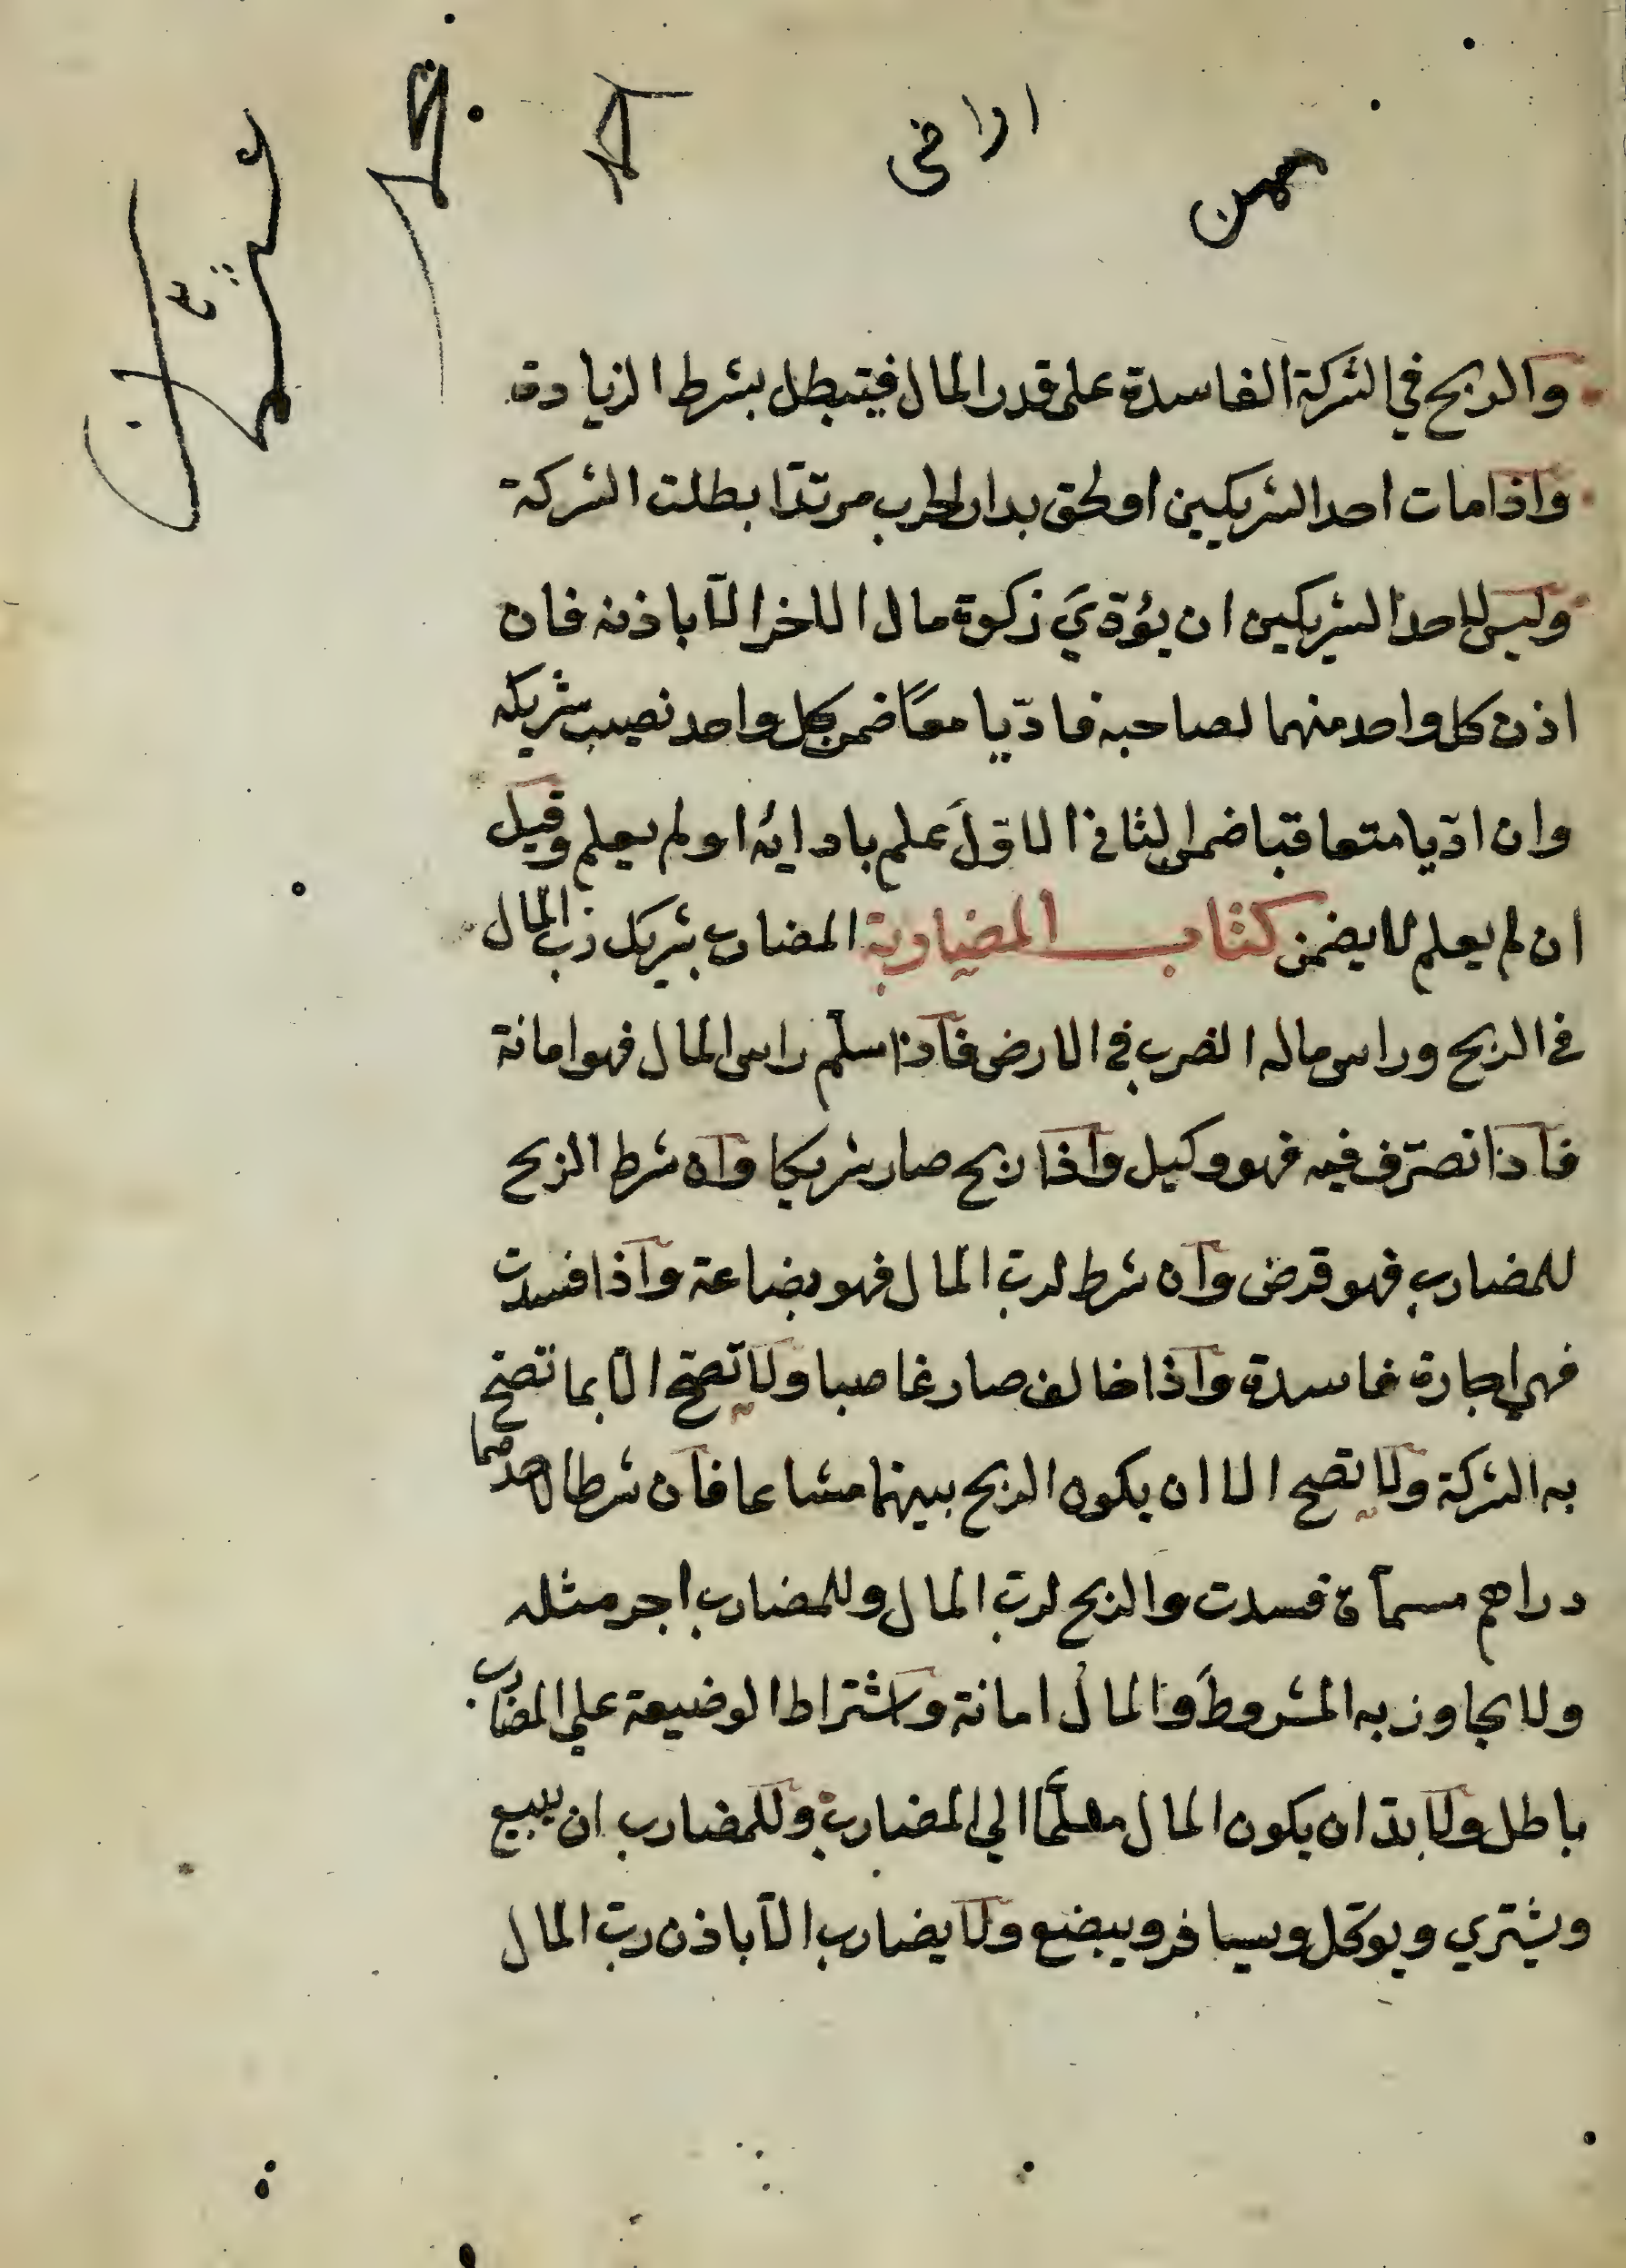 والربح في الشركة الفاسدة على قدر المال فيتبطل بشرط الزيادة
واذا مات احد الشريكين او لحق بدار الحرب مرتدّا بطلت الشركة
وليس لاحد الشريكين ان يؤدّيَ زكوة مال الاخر الّا باذنه فان
اذن كل واحد منهما لصاحبه فادّيا معًا ضمن كل واحد نصيب شريكه
وان ادّيا متعاقبا ضمن الثاني الاوّلَ علم بادائه او لم يعلم وقيل
ان لم يعلم لا يضمن كتاب المضاربة المضارب شريك ربّ المال
في الربح وراس ماله الضرب في الارض فاذا سلّم راس المال فهو امانة
فاذا تصرّف فيه فهو وكيل واذا ربح صار شريكا وان شرط الربح
للمضارب فهو قرض وان شرط لربّ المال فهو بضاعة واذا فسدت
فهي اجارة فاسدة واذا خالف صار غاصبا ولا تصحّ الّا بما تصحّ
به الشركة ولا يصح الا ان يكون الربح بينهما مشاعا فان شرط لاحدهما
دراهم مسمّاة فسدت والربح لربّ المال وللمضارب اجر مثله
ولا يجاوز به المشروطَ والمال امانة واشتراط الوضيعة على المضارب
باطل ولا بدّ ان يكون المال مسلّمًا الي المضارب وللمضارب ان يبيع
ويشتري ويوكّل ويسافر ويبضع ولا يضارب الّا باذن ربّ المال